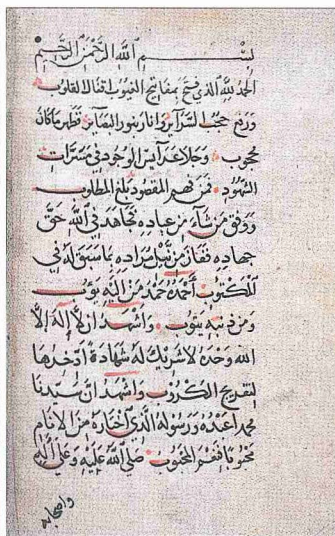 بسم الله الرحمن الرحيم
الحمد لله الذي فتح بمفاتيح الغيوب اقفال القلوب
ورفع حجب السرائر وانار بنور البصائر فظهر ما كان
محجوب وجلا عرائس الوجود في مسرات
الشهود فمن فهم المقصود بلغ المطلوب
ووفق من شاء من عباده فجاهد في الله حق
جهاده ففاز من نيل مراده بما سبق له في
المكتوب أحمده حمد من إليه يؤب
ومن ذنبه يتوب واشهد ان لا إله إلا
الله وحده لا شريك له شهادة ادخرها
لتفريج الكروب واشهد ان سيدنا
محمد اعبده ورسوله الذي اختاره من الانام
محبوبا فنعم المحبوب صلي الله عليه وعلي أله
واصحابه